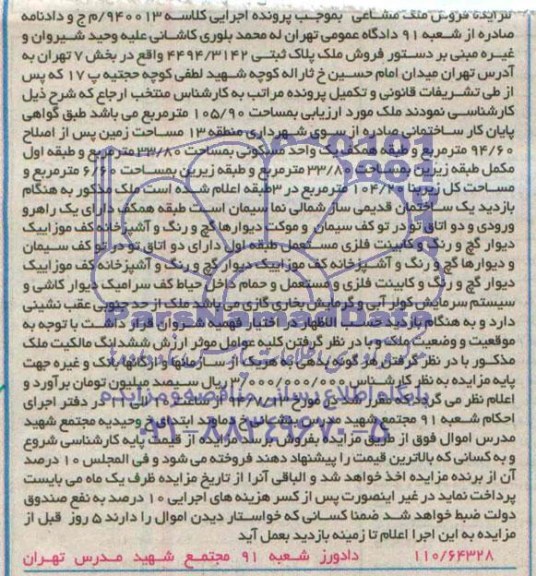 مزایده فروش ملک مشاعی بموجب پرونده اجرایی کلاسه ۹۴۰۰۱۳/م ج و دادنامه
صادره از شعبه ۹۱ دادگاه عمومی تهران له محمد بلوری کاشانی علیه وحید شیروان و
غیره مبنی بر دستور فروش ملک پلاک ثبتی ۴۴۹۴/۳۱۴۲ واقع در بخش ۷ تهران به
آدرس تهران میدان امام حسین خ ثاراله کوچه شهید لطفی کوچه حجتیه پ ۱۷ که پس
از طی تشریفات قانونی و تکمیل پرونده مراتب به کارشناس منتخب ارجاع که شرح ذیل
کارشناسی نمودند ملک مورد ارزیابی بمساحت ۱۰۵/۹۰ مترمربع می باشد طبق گواهی
پایان کار ساختمانی صادره از سوی شهرداری منطقه ۱۳ مساحت زمین پس از اصلاح
۹۴/۶۰ مترمربع و طبقه همکف یک واحد مسکونی بمساحت ۳۳/۸۰ مترمربع و طبقه اول
مکمل طبقه زیرین بمساحت ۳۳/۸۰ مترمربع و طبقه زیرین بمساحت ۶/۶۰ مترمربع و
مساحت کل زیربنا ۱۰۴/۲۰ مترمربع در ۳طبقه اعلام شده است ملک مذکور به هنگام
بازدید یک ساختمان قدیمی ساز شمالی نما سیمان است طبقه همکف دارای یک راهرو
ورودی و دو اتاق تو در تو کف سیمان و موکت دیوارها گچ و رنگ و آشپزخانه کف موزاییک
دیوار گچ و رنگ و کابینت فلزی مستعمل طبقه اول دارای دو اتاق تو در تو کف سیمان
و دیوارها گچ و رنگ و آشپزخانه کف موزاییک دیوار گچ و رنگ و آشپزخانه کف موزاییک
دیوار گچ و رنگ و کابینت فلزی و مستعمل و حمام داخل حیاط کف سرامیک دیوار کاشی و
سیستم سرمایش کولر آبی و گرمایش بخاری گازی می باشد ملک از حد جنوبی عقب نشینی
دارد و به هنگام بازدید حسب الاظهار در اختیار فهمیه شیروان قرار داشت با توجه به
موقعیت و وضعیت ملک و با در نظر گرفتن کلیه عوامل موثر ارزش ششدانگ مالکیت ملک
مذکور با در نظر گرفتن هر گونه بدهی به هریک از سازمانها و ارگانها بانک و غیره جهت
پایه مزایده به نظر کارشناس ۳/۰۰۰/۰۰۰/۰۰۰ ریال سیصد میلیون تومان برآورد و
اعلام نظر می گردد که مقرر شد در مورخ از ساعت ۱۰ الی ۱۱ در دفتر اجرای
احکام شعبه ۹۱ مجتمع شهید مدرس بنشانی خ دماوند ابتدای خ وحیدیه مجتمع شهید
مدرس اموال فوق از طریق مزایده بفروش برسد مزایده از قیمت پایه کارشناسی شروع
و به کسانی که بالاترین قیمت را پیشنهاد دهند فروخته می شود و فی المجلس ۱۰ درصد
آن از برنده مزایده اخذ خواهد شد و الباقی آنرا از تاریخ مزایده ظرف یک ماه می بایست
پرداخت نماید در غیر اینصورت پس از کسر هزینه های اجرایی ۱۰ درصد به نفع صندوق
دولت ضبط خواهد شد ضمنا کسانی که خواستار دیدن اموال را دارند ۵ روز قبل از
مزایده به این اجرا اعلام تا زمینه بازدید بعمل آید
۱۱۰/۶۴۳۲۸ دادورز شعبه ۹۱ مجتمع شهید مدرس تهران
ParsNamadData
پایگاه اطلاع رسانی مناقصه و مزایده
۰۲۱-۸۸۳۴۹۶۷۰-۵